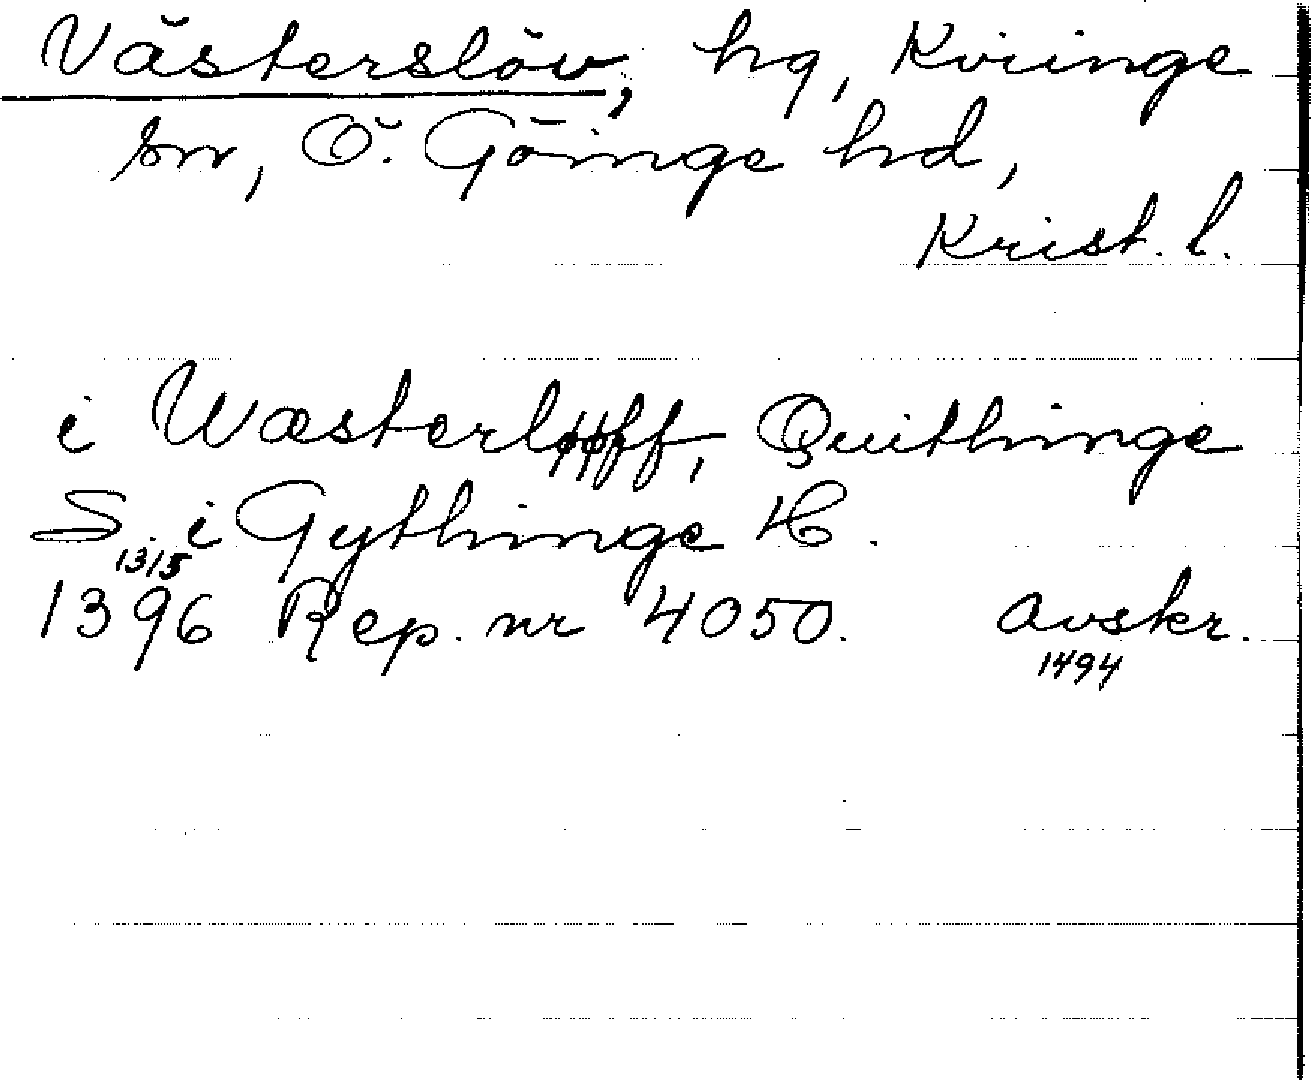 Västerslöv, hg, Kviinge
sn, Ö. Göinge hd,
Krist. l.
i Wæsterløøff, Quithinge
S. i Gythinge H.
13/5
1396 Rep. nr 4050. Avskr.
1494